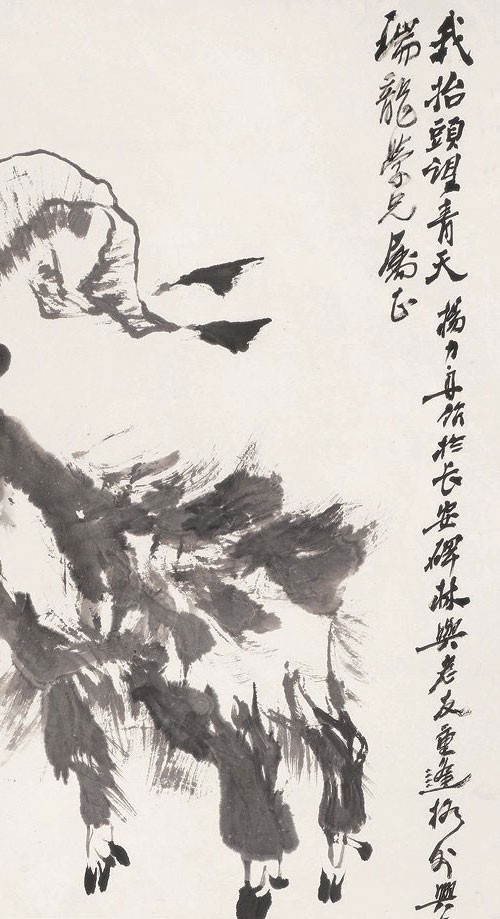 我抬頭望青天 楊力舟作於長安碑林與老友重逢格外興
瑞龍學兄屬正